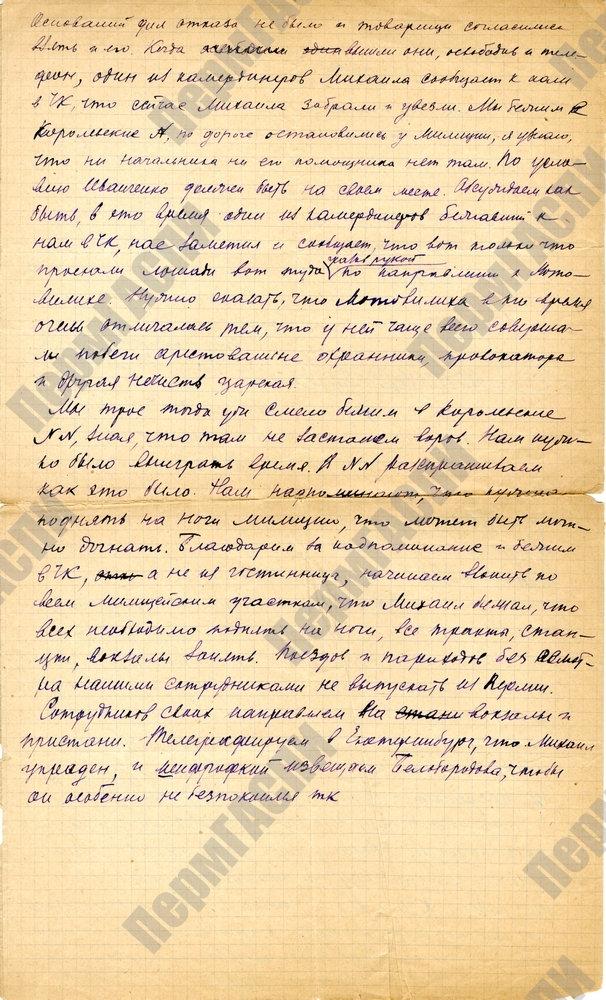 Оснований для отказа не было и товарищи согласились
взять и его. Когда вышли они, освободив и теле-
фон, один из камердинеров Михаила сообщает к нам
в ЧК, что сейчас Михаила забрали и увезли. Мы бежим в
Королевские А, по дороге остановились у милиции, я узнаю,
что ни начальника ни его помощника нет там. По усло-
вию Иванченко должен быть на своем месте. Обсуждаем как
быть, в это время один из камердинеров бежавший к
нам в ЧК, нас заметил и сообщает, что вот только что
проехали лошади вот туда махая рукой по направлению к Мото-
вилихе. Нужно сказать, что Мотовилиха в то время
очень отличалась тем, что у ней чаще всего соверша-
ли побеги арестованные охранники, провокатора
и другая нечисть царская.
Мы трое тогда уже смело бежим в Королевские
NN, зная, что там не застанем воров. Нам нуж-
но было выиграть время. В NN распрашиваем
как это было. Нам напоминают, что нужно
поднять на ноги милицию, что может быть мож-
но догнать. Благодарим за надпоминание и бежим
в ЧК, а не из гостинницы, начинаем звонить по
всем милицейским участкам, что Михаил бежал, что
всех необходимо поднять на ноги, все тракты, стан-
ции, вокзалы занять. Поездов и пароходов без осмот-
ра нашими сотрудниками не выпускать из Перми.
Сотрудников своих направляем на вокзалы и
пристани. Телеграфируем в Екатеринбург, что Михаил
украден, и шифровкой извещаем Белобородова, чтобы
он особенно не безпокоился тк
ПермГАСПИ
ПермГАСПИ
ПермГАСПИ
ПермГАСПИ
ПермГАСПИ